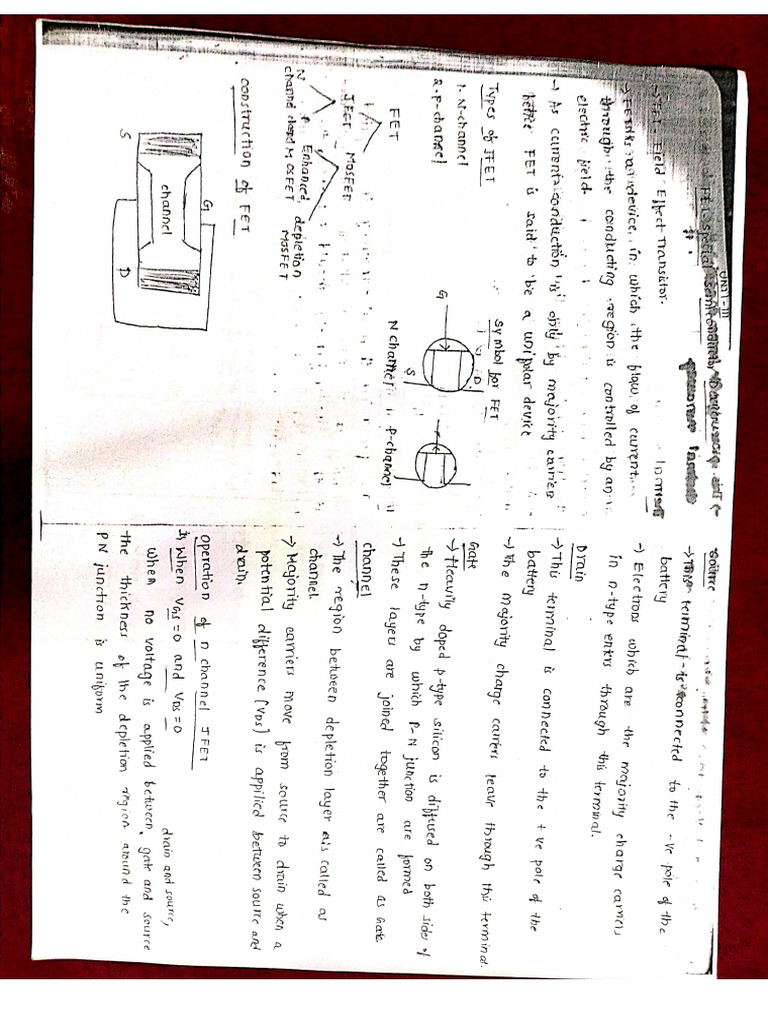 UNIT-III
→ FET - Field Effect Transistor.
→ FET is a device, in which the flow of current
through the conducting region is controlled by an
electric field.
→ As current conduction is only by majority carrier
hence FET is said to be a unipolar device
Types of JFET
1. N-channel
2. P-channel
Symbol for FET
G
D
S
N channel
P-channel
FET
JFET MOSFET
N P Enhanced depletion
channel MOSFET MOSFET
construction of FET
S
G
D
channel
source
→ This terminal is connected to the -ve pole of the
battery
→ Electrons which are the majority charge carriers
in n-type enters through this terminal.
Drain
→ This terminal is connected to the +ve pole of the
battery
→ The majority charge carriers leave through this terminal.
Gate
→ Heavily doped p-type silicon is diffused on both sides of
the n-type by which P-N junction are formed
→ These layers are joined together are called as Gate
channel
→ The region between depletion layer is called as
channel.
→ Majority carriers move from source to drain when a
potential difference (VDS) is applied between source and
drain.
operation of n channel JFET
i) When VGS = 0 and VDS = 0
drain and source,
when no voltage is applied between, gate and source
the thickness of the depletion region around the
PN junction is uniform